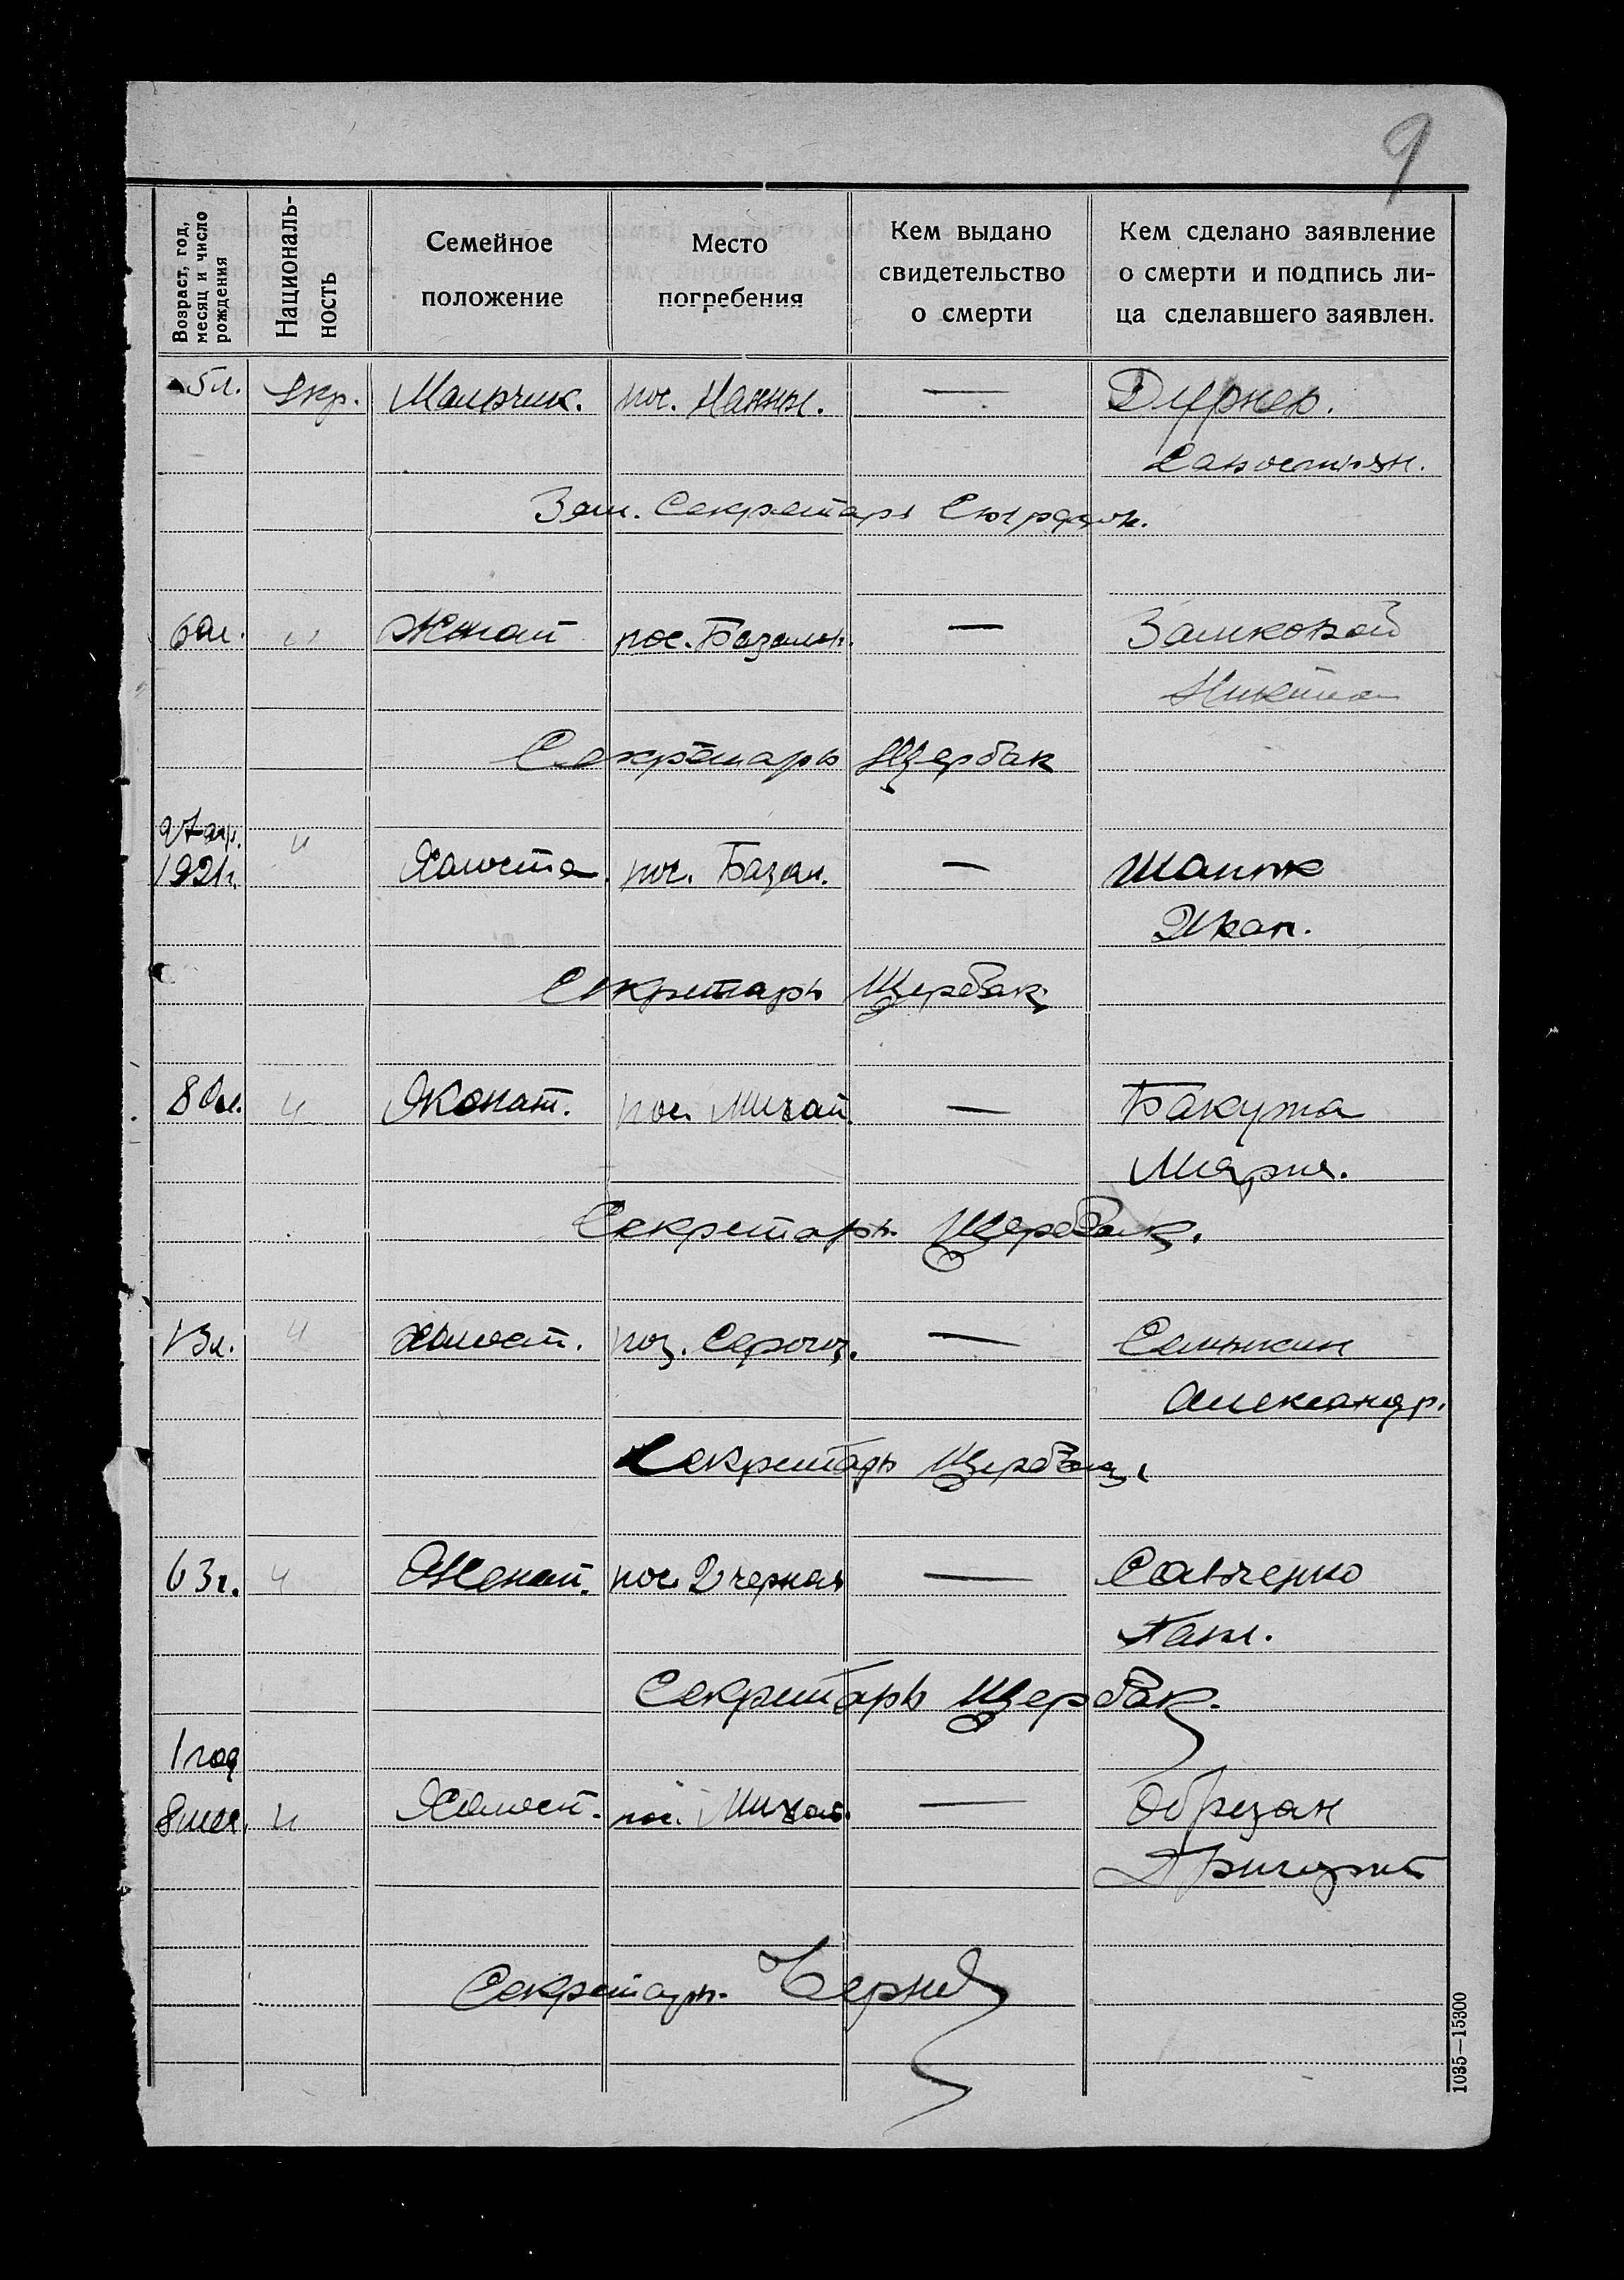 9
Возраст, год, месяц и число рождения
Националь-
ность
Семейное
положение
Место
погребения
Кем выдано
свидетельство
о смерти
Кем сделано заявление
о смерти и подпись ли-
ца сделавшего заявлен.
5л. Укр. Мальчик. пос. —
Зам. Секретарь
60л. " Женат пос. Базалев. — Замковой
Никита
Секретарь Щербак
27 апр.
1921г. " Холоста. пос. Базал. — Шапок
Иван.
Секретарь Щербак
80л. " Женат. пос. Михай. — Бакума
Мария.
Секретарь Щербак.
13л. " Холост. — Семыкин
Александр.
Секретарь Щербак
63г. " Женат. пос. 2 — Савченко
Павл.
Секретарь Щербак.
1 год
8 мес. " Холост. пос. Михай. — Обрезан
Григорий
Секретарь
1035—15300